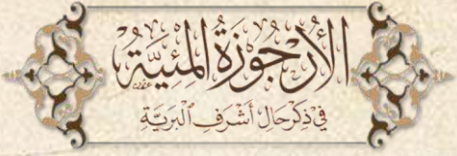 الأُرْجُوزَةُ المِئِيَّةُ
فِي ذِكْرِ حَالِ أَشْرَفِ ٱلْبَرِيَّةِ